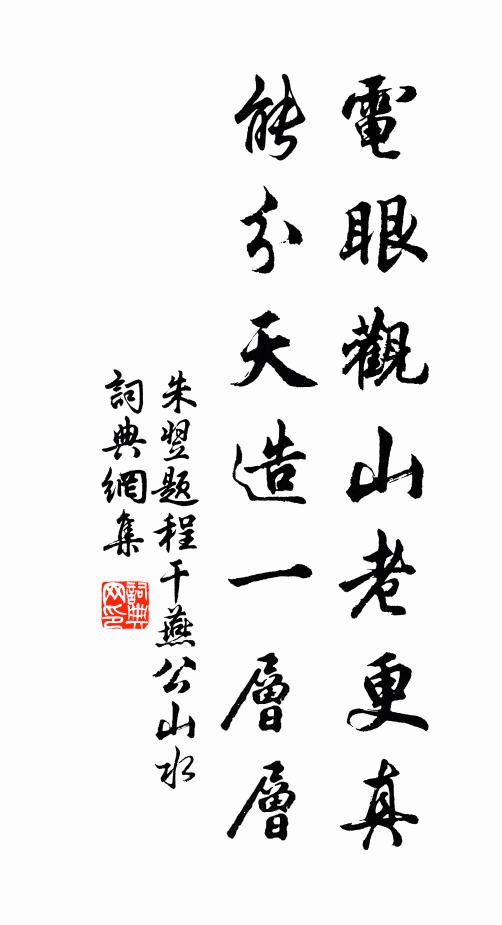 電眼觀山老更真
能分天造一層層
朱翌題程干燕公山水
詞典網集
詞典網印